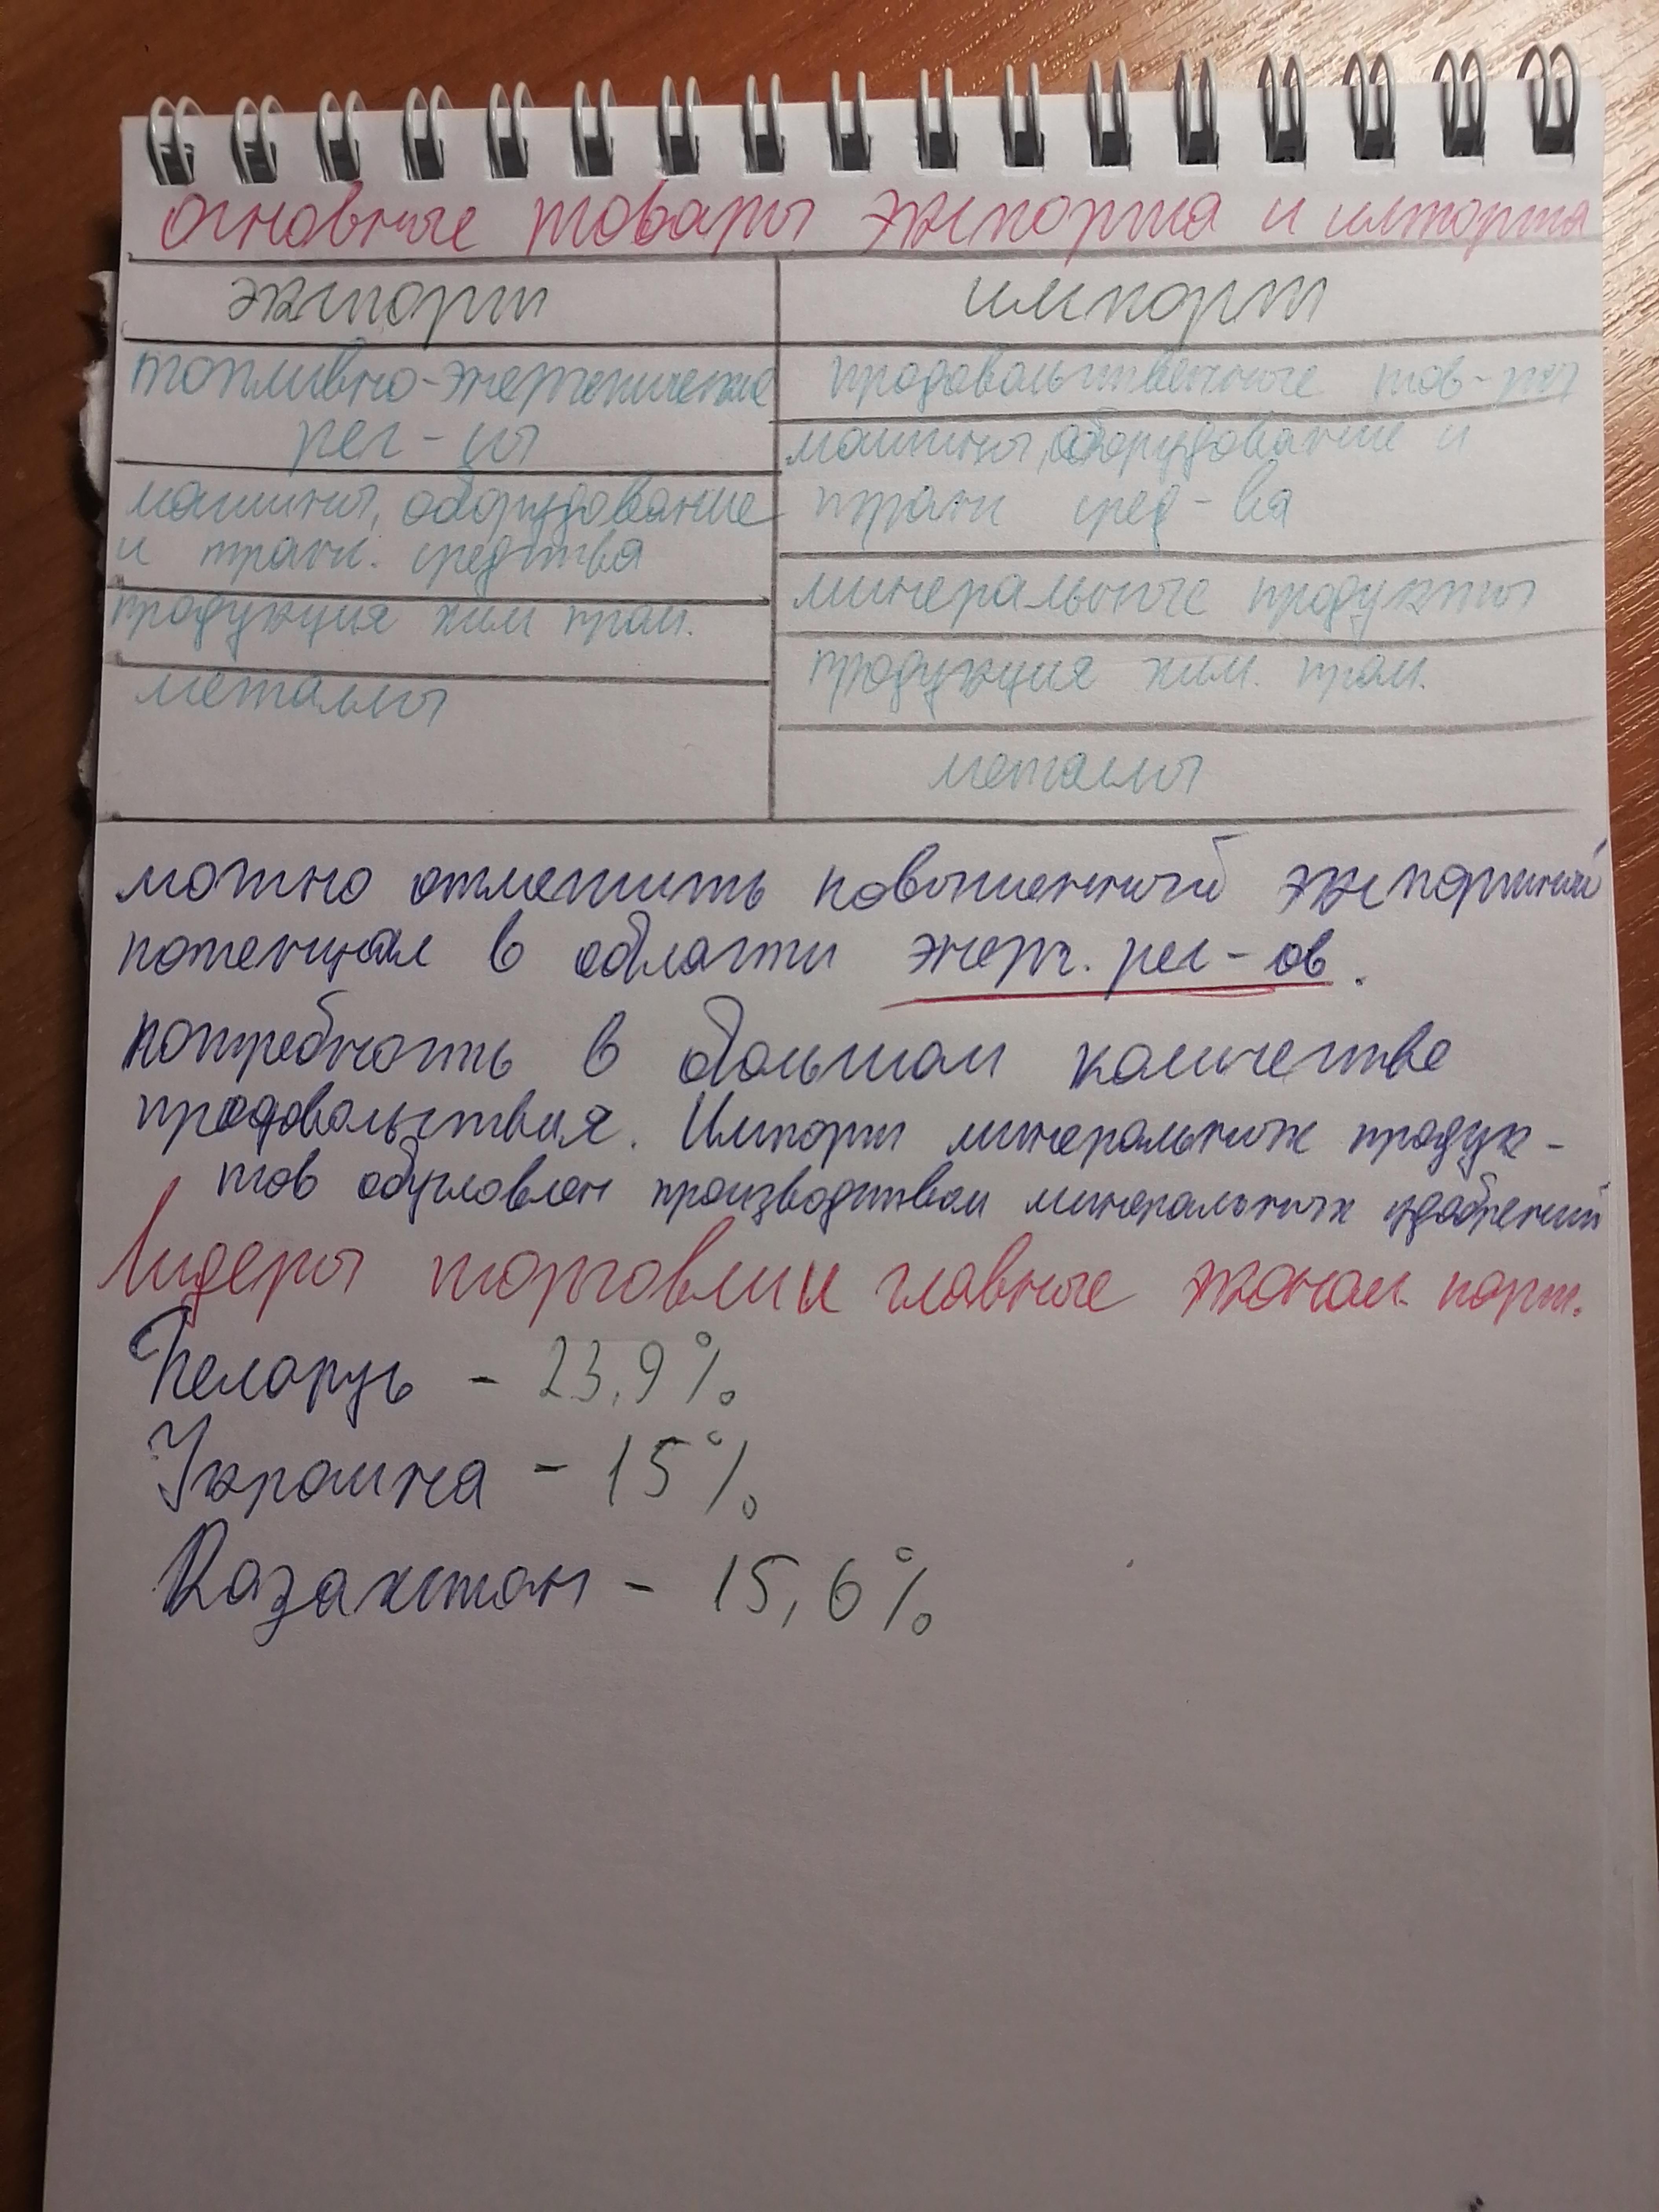 основные товары экспорта и импорта
экспорт
импорт
топливно-энергетические
рес-сы
машины, оборудование
и трансп. средства
продукция хим пром.
металлы
продовольственные тов-ры
машины, оборудование и
трансп сред-ва
минеральные продукты
продукция хим. пром.
металлы
можно отметить повышенный экспортный
потенциал в области энерг. рес-ов.
потребность в большом количестве
продовольствия. Импорт минеральных продук-
тов обусловлен производством минеральных удобрений
Лидеры торговли и главные эконом. парт.
Беларусь - 23,9%
Украина - 15%
Казахстан - 15,6%